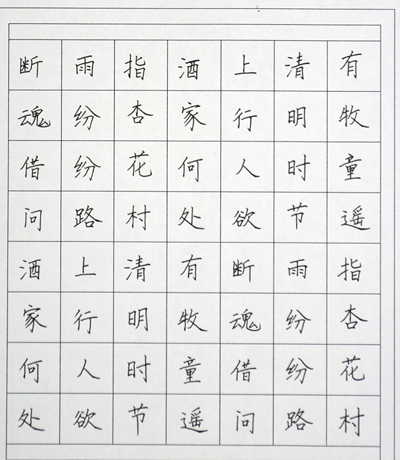 有牧童遥指杏花村
清明时节雨纷纷路
上行人欲断魂借问
酒家何处有牧童遥
指杏花村清明时节
雨纷纷路上行人欲
断魂借问酒家何处